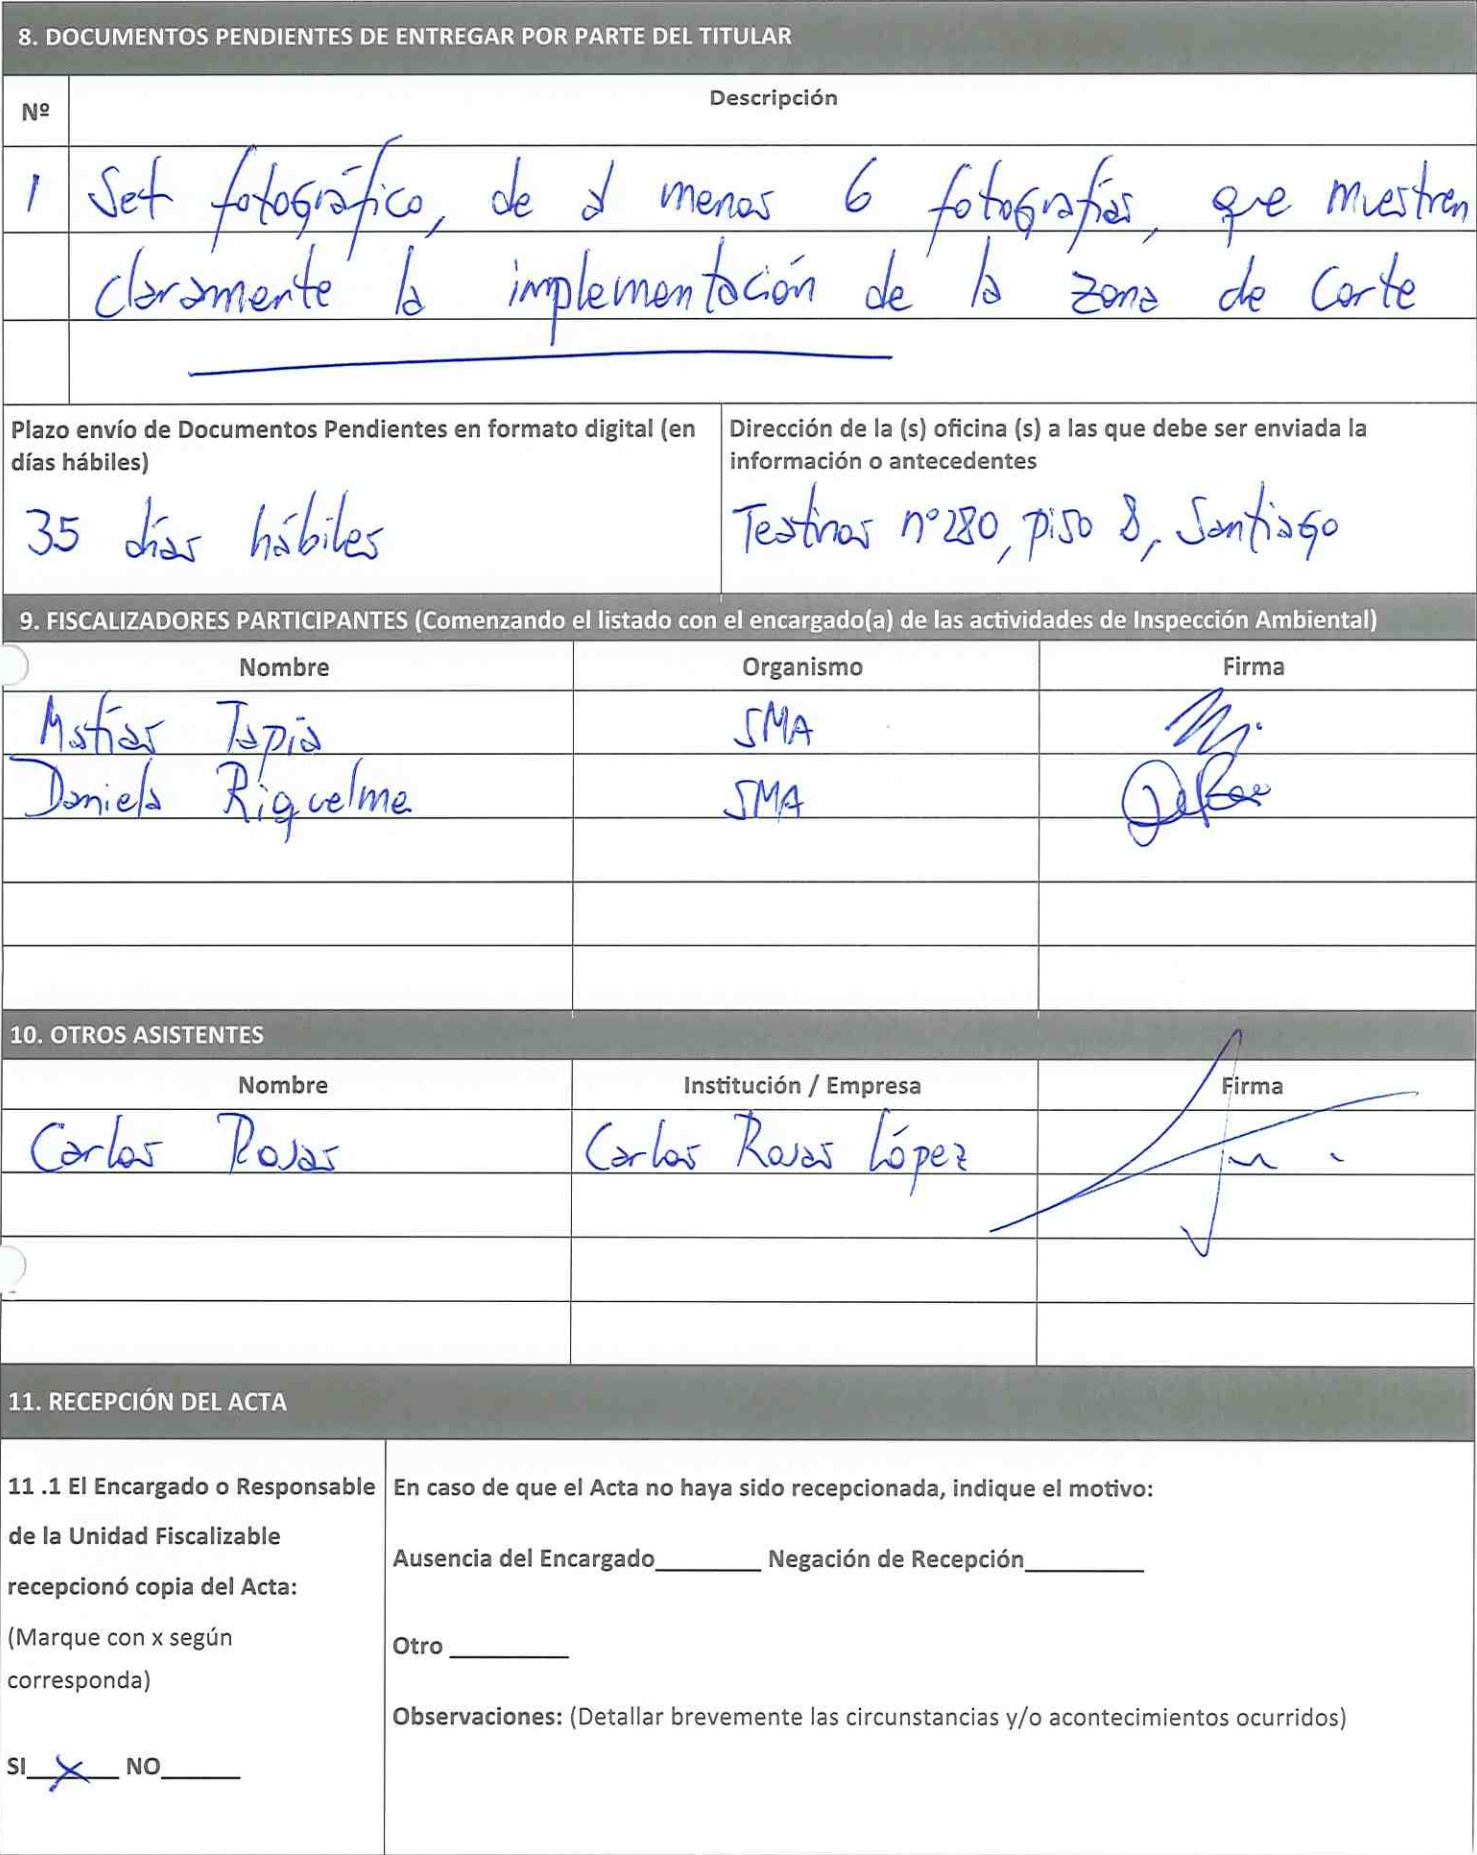 8. DOCUMENTOS PENDIENTES DE ENTREGAR POR PARTE DEL TITULAR
Nº
Descripción
1 Set fotográfico, de al menos 6 fotografías, que muestren
claramente la implementación de la zona de Corte
Plazo envío de Documentos Pendientes en formato digital (en
días hábiles)
35 días hábiles
Dirección de la (s) oficina (s) a las que debe ser enviada la
información o antecedentes
Teatinos nº280, piso 8, Santiago
9. FISCALIZADORES PARTICIPANTES (Comenzando el listado con el encargado(a) de las actividades de Inspección Ambiental)
Nombre Organismo Firma
Matías Tapia SMA
Daniela Riquelme SMA
10. OTROS ASISTENTES
Nombre Institución / Empresa Firma
Carlos Rojas Carlos Rojas López
11. RECEPCIÓN DEL ACTA
11 .1 El Encargado o Responsable
de la Unidad Fiscalizable
recepcionó copia del Acta:
(Marque con x según
corresponda)
SI__X__ NO______
En caso de que el Acta no haya sido recepcionada, indique el motivo:
Ausencia del Encargado________ Negación de Recepción_________
Otro _________
Observaciones: (Detallar brevemente las circunstancias y/o acontecimientos ocurridos)